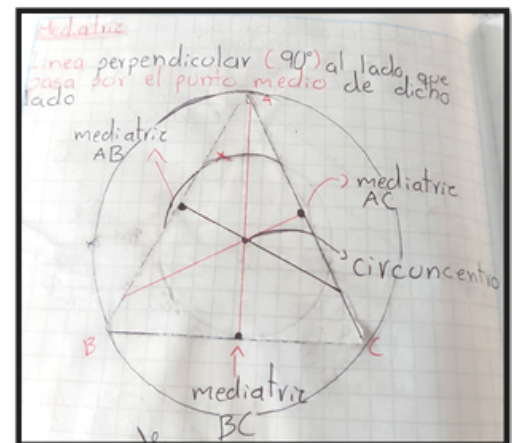 Mediatriz
Linea perpendicular (90°) al lado que
pasa por el punto medio de dicho
lado
A
mediatriz
AB
mediatriz
AC
circuncentro
B
C
mediatriz
BC